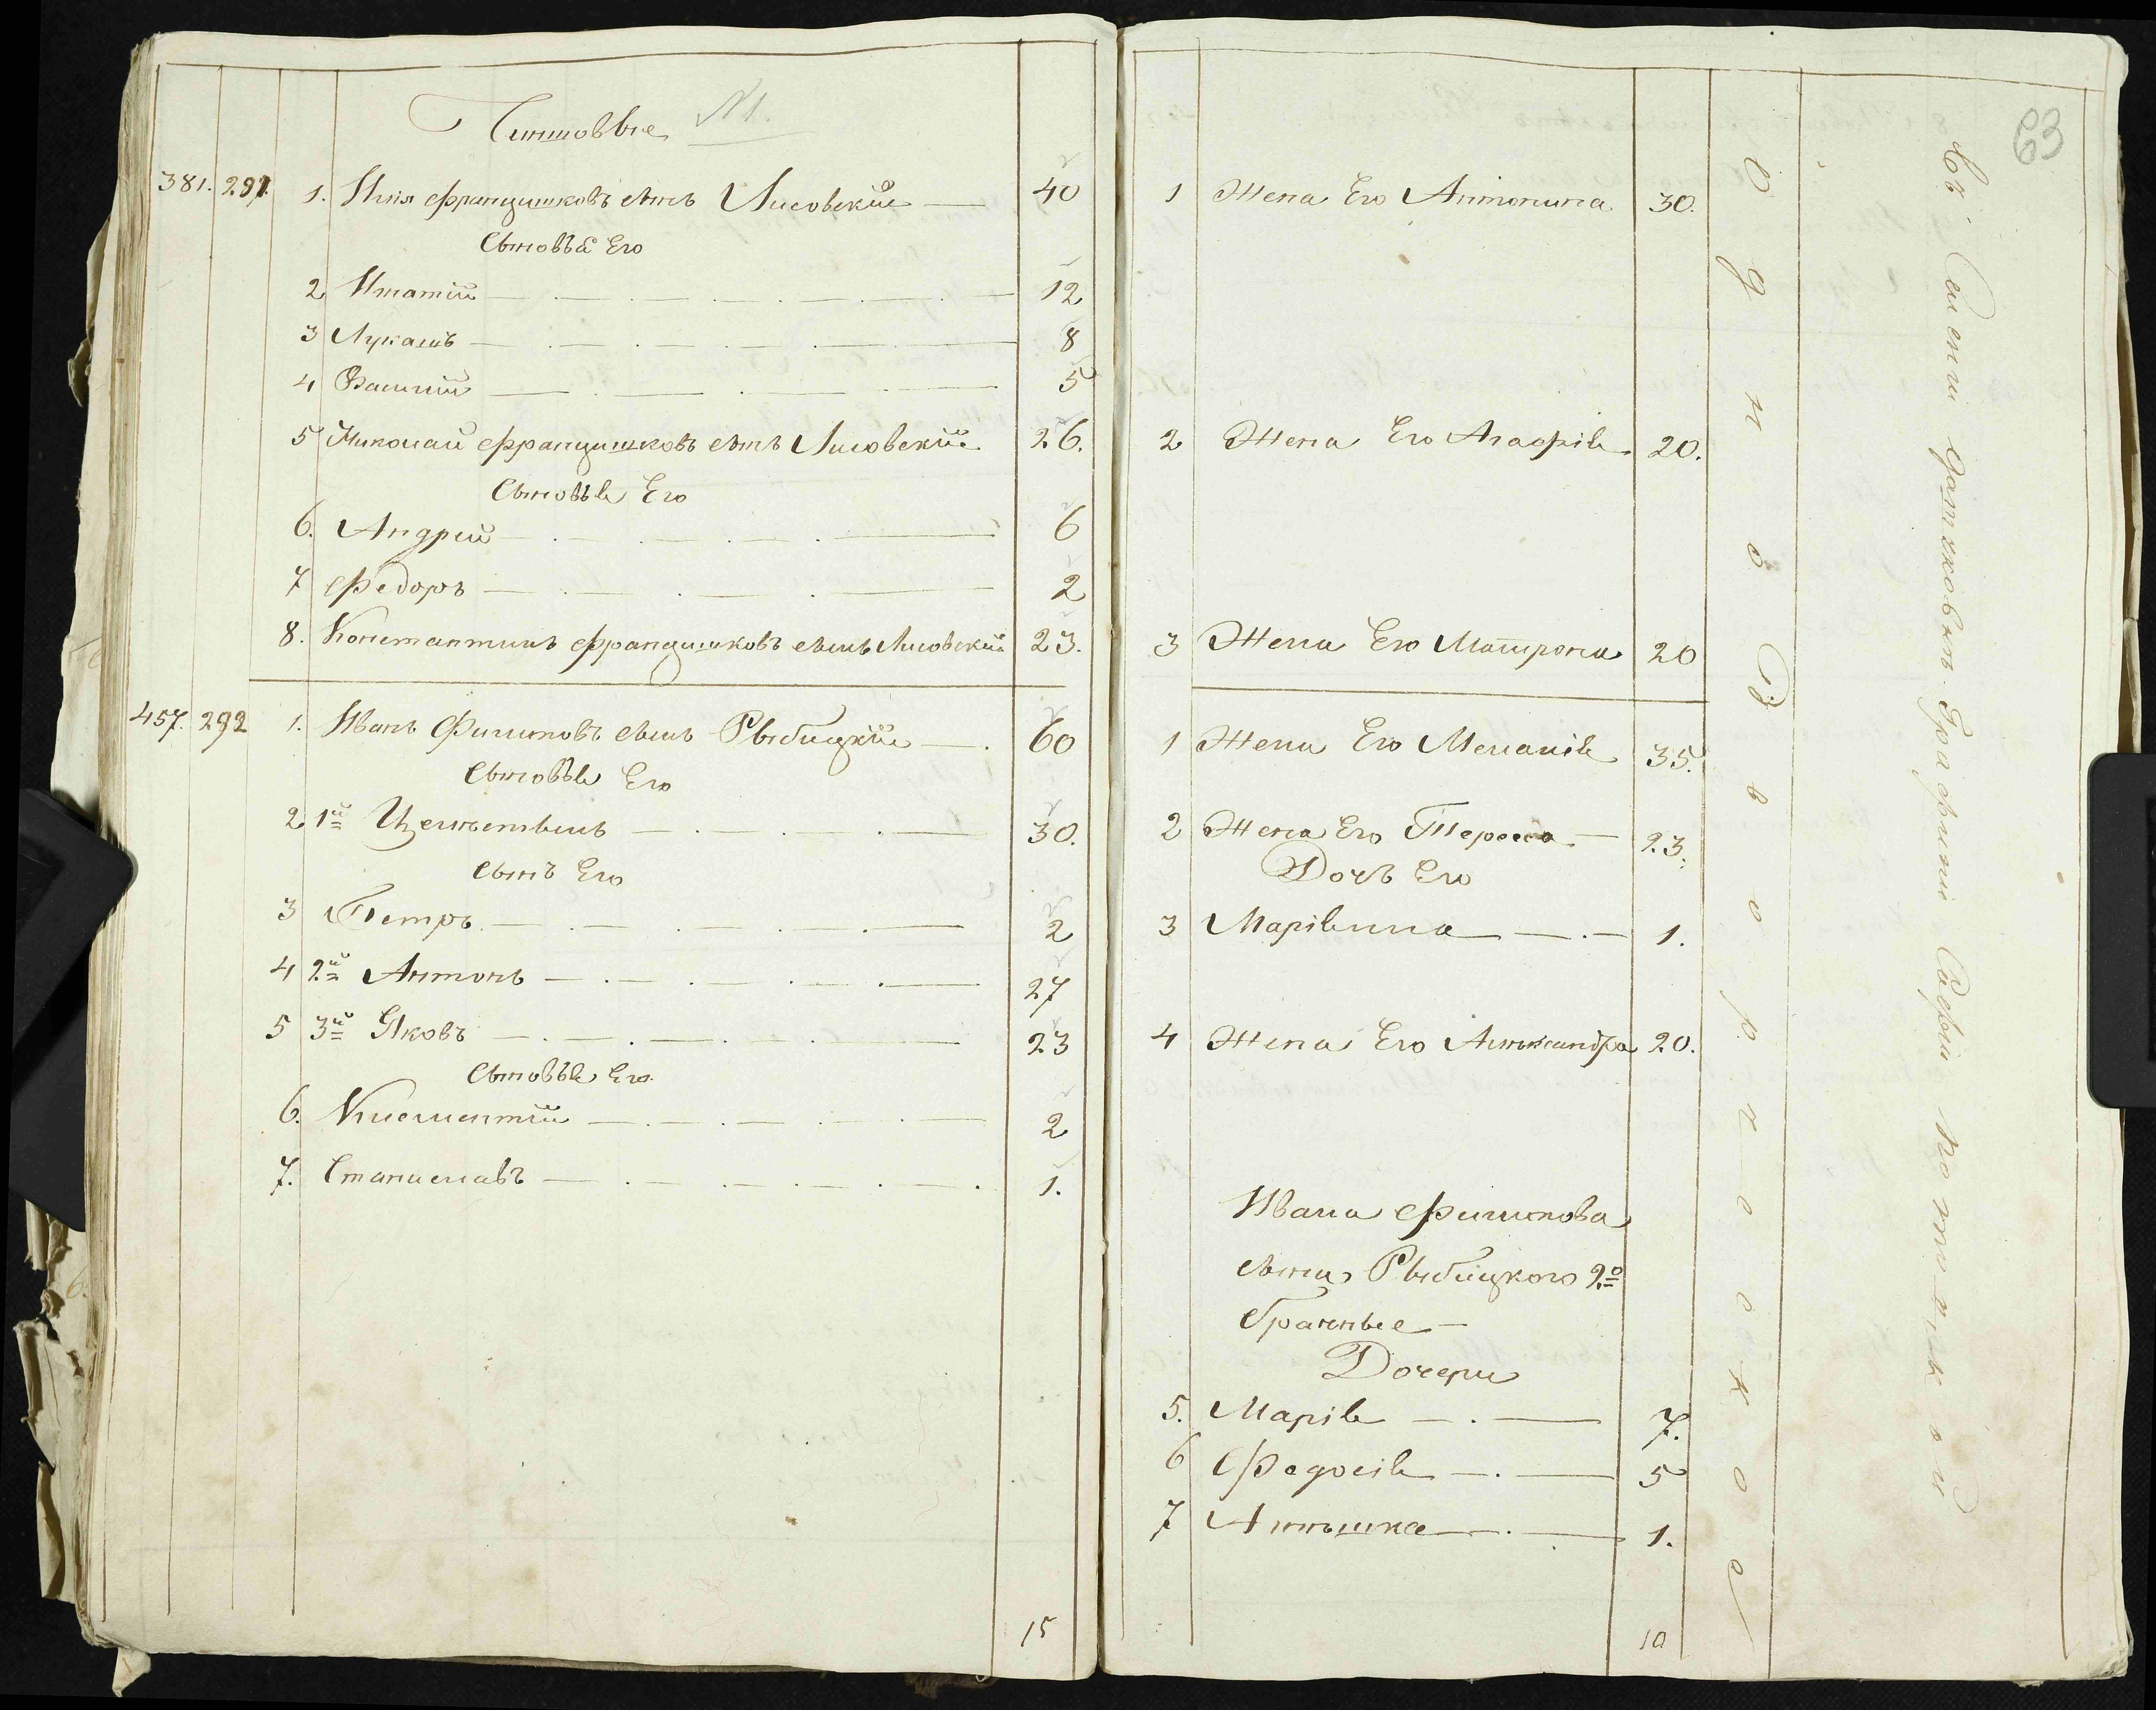 Чиншовые №1.
381. 291. 1. Илія Францишковъ сынъ Лисовскій — 40
Сыновья Его
2 Игнатій — 12
3 Лукашъ — 8
4 Василій — 5
5 Николай Францишковъ сынъ Лисовскій 26.
Сыновья Его
6. Андрей — 6
7 Федоръ — 2
8. Константинъ Францишковъ сынъ Лисовскій 23.
457. 292 1. Иванъ Филиповъ сынъ Рыбицкій — 60
Сыновья Его
2 1й Целестынъ — 30.
Сынъ Его
3 Петръ — 2
4 2й Антонъ — 27
5 3й Яковъ — 23
Сыновья Его
6. Клементій — 2
7. Станиславъ — 1.
15
63
1 Жена Его Антонина 30.
2 Жена Его Агафія 20.
3 Жена Его Матрона 20
1 Жена Его Меланія 35.
2 Жена Его Тереса — 23.
Дочь Его
3 Маріянна — 1.
4 Жена Его Александра 20.
Ивана Филипова
сына Рыбицкого 2о
брачные —
Дочери
5. Марія — 7.
6 Федосія — 5
7 Анньшка — 1.
10
Однодворческое
Въ Селеніи Графини Софіи Потоцкой